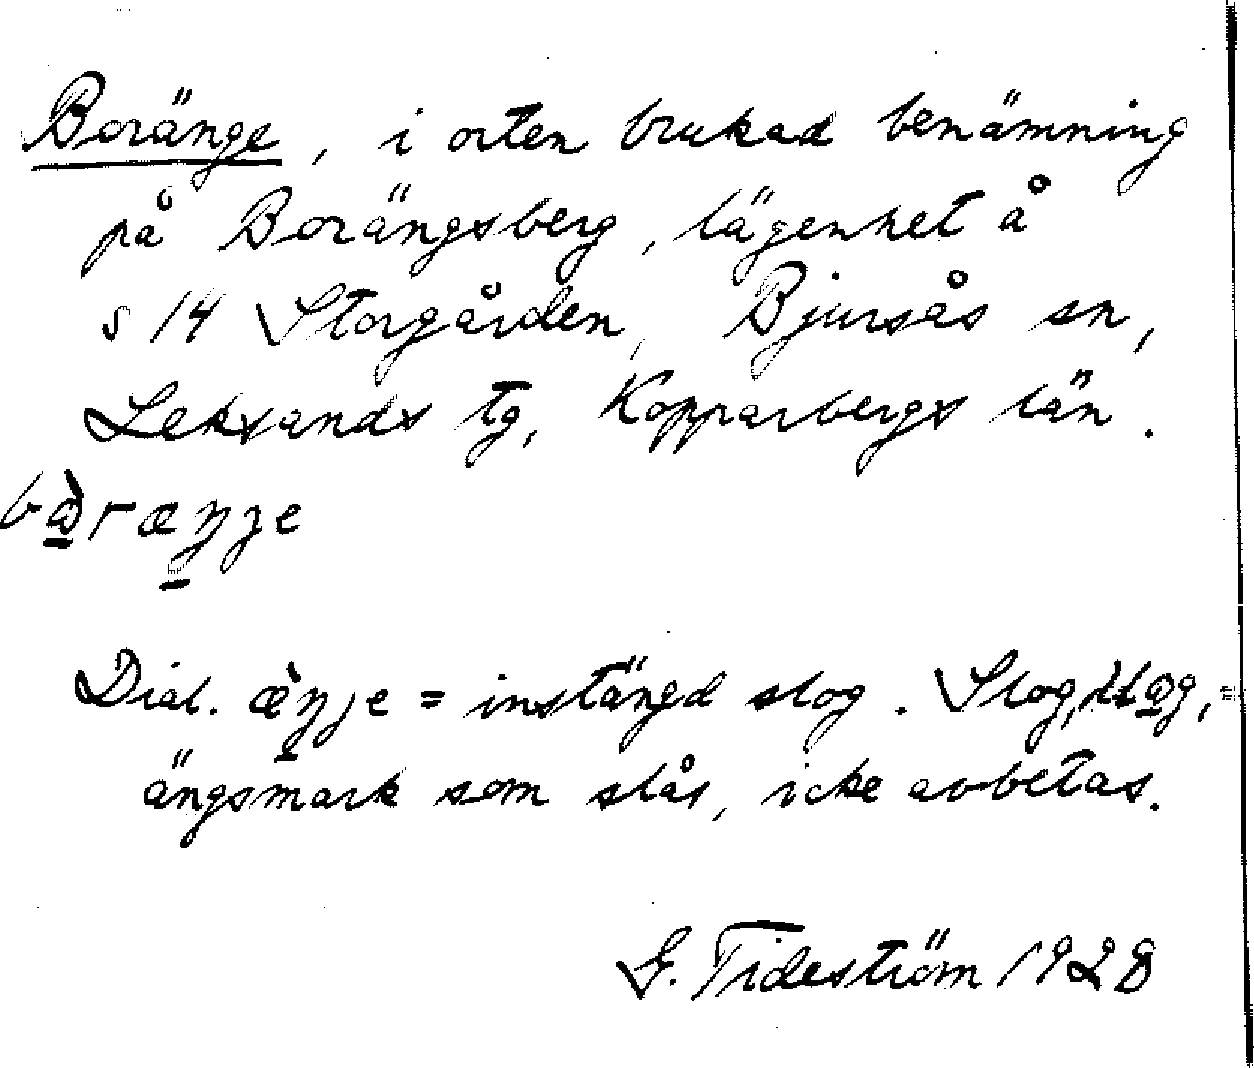 Boränge, i orten brukad benämning
på Borängsberg, lägenhet å
s 14 Storgården, Bjursås sn,
Leksands tg, Kopparbergs län.
Dial. = instängd slog. Slog,
ängsmark som slås, icke avbetas.
G. Tideström 1928